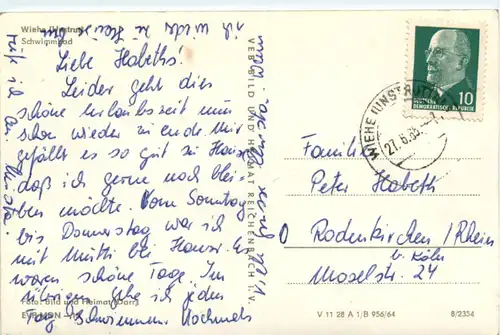 Wiehe (Unstrut)
Schwimmbad
Liebe Habeths!
Leider geht dies
schöne Urlaubszeit nun
schon wieder zu ende. Mir
gefällt es so gut zu Hause
daß ich gerne noch blei-
ben möchte. Vom Sonntag
bis Donnerstag war ich
mit Mutti bei Hansi. Es
waren schöne Tage. Im
übrigen gehe ich jeden
Tag schwimmen. Nochmals
ich wieder zu
Foto: Bild und Heimat (Darr)
VEB BILD UND HEIMAT REICHENBACH i. V.
10
DEUTSCHE
DEMOKRATISCHE REPUBLIK
WIEHE (UNSTRUT)
27.6.65
Familie
Peter Habeth
Rodenkirchen/Rhein
b. Köln
Moselstr. 24
V 11 28 A 1/B 956/64
8/2354